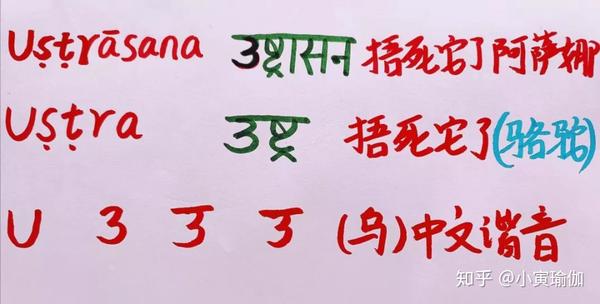 Uṣṭrāsana उष्ट्रासन 捂死它了阿萨娜
Uṣṭra उष्ट्र 捂死它了(骆驼)
U 3 उ उ (乌)中文谐音
知乎 @小寅瑜伽